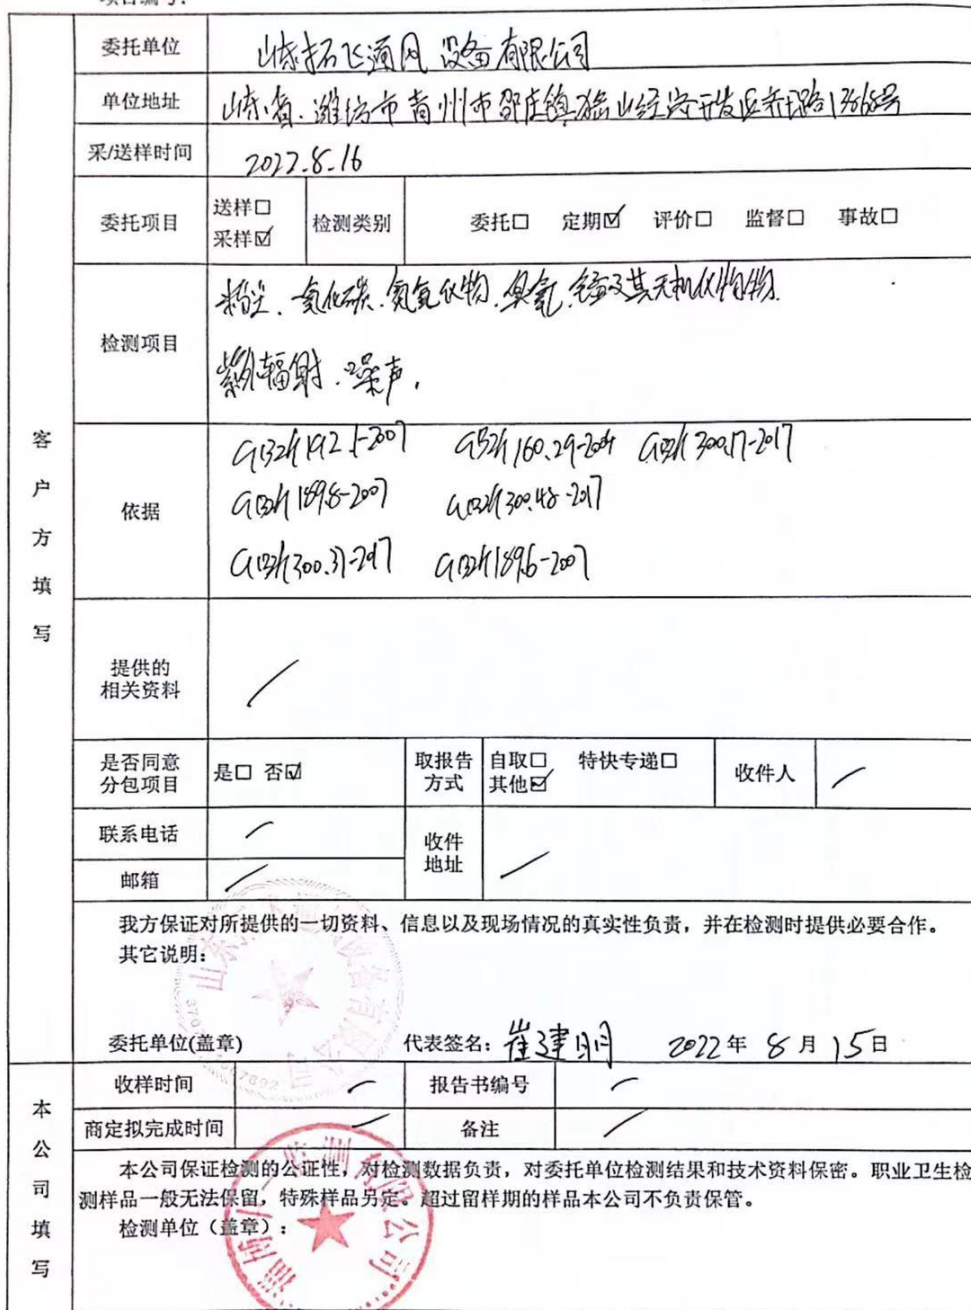 项目编号:
委托单位 山东拓飞通风设备有限公司
单位地址 山东省潍坊市青州市邵庄镇 山经济开发区 路13868号
采/送样时间 2022.8.16
委托项目 送样☐ 采样☑ 检测类别 委托☐ 定期☑ 评价☐ 监督☐ 事故☐
检测项目 粉尘、一氧化碳、氮氧化物、臭氧、锰及其无机化合物、
紫外辐射、噪声,
客户方填写
依据 GBZ/T 192.1-2007 GBZ/T 160.29-2004 GBZ/T 300.17-2017
GBZ/T 189.8-2007 GBZ/T 300.48-2017
GBZ/T 300.37-2017 GBZ/T 189.6-2007
提供的相关资料 /
是否同意分包项目 是☐ 否☑ 取报告方式 自取☐ 特快专递☐ 其他☑ 收件人 /
联系电话 / 收件地址 /
邮箱 /
我方保证对所提供的一切资料、信息以及现场情况的真实性负责,并在检测时提供必要合作。
其它说明:
委托单位(盖章) 代表签名: 崔建明 2022年8月15日
本公司填写
收样时间 / 报告书编号 /
商定拟完成时间 / 备注 /
本公司保证检测的公证性,对检测数据负责,对委托单位检测结果和技术资料保密。职业卫生检
测样品一般无法保留,特殊样品另定。超过留样期的样品本公司不负责保管。
检测单位(盖章):